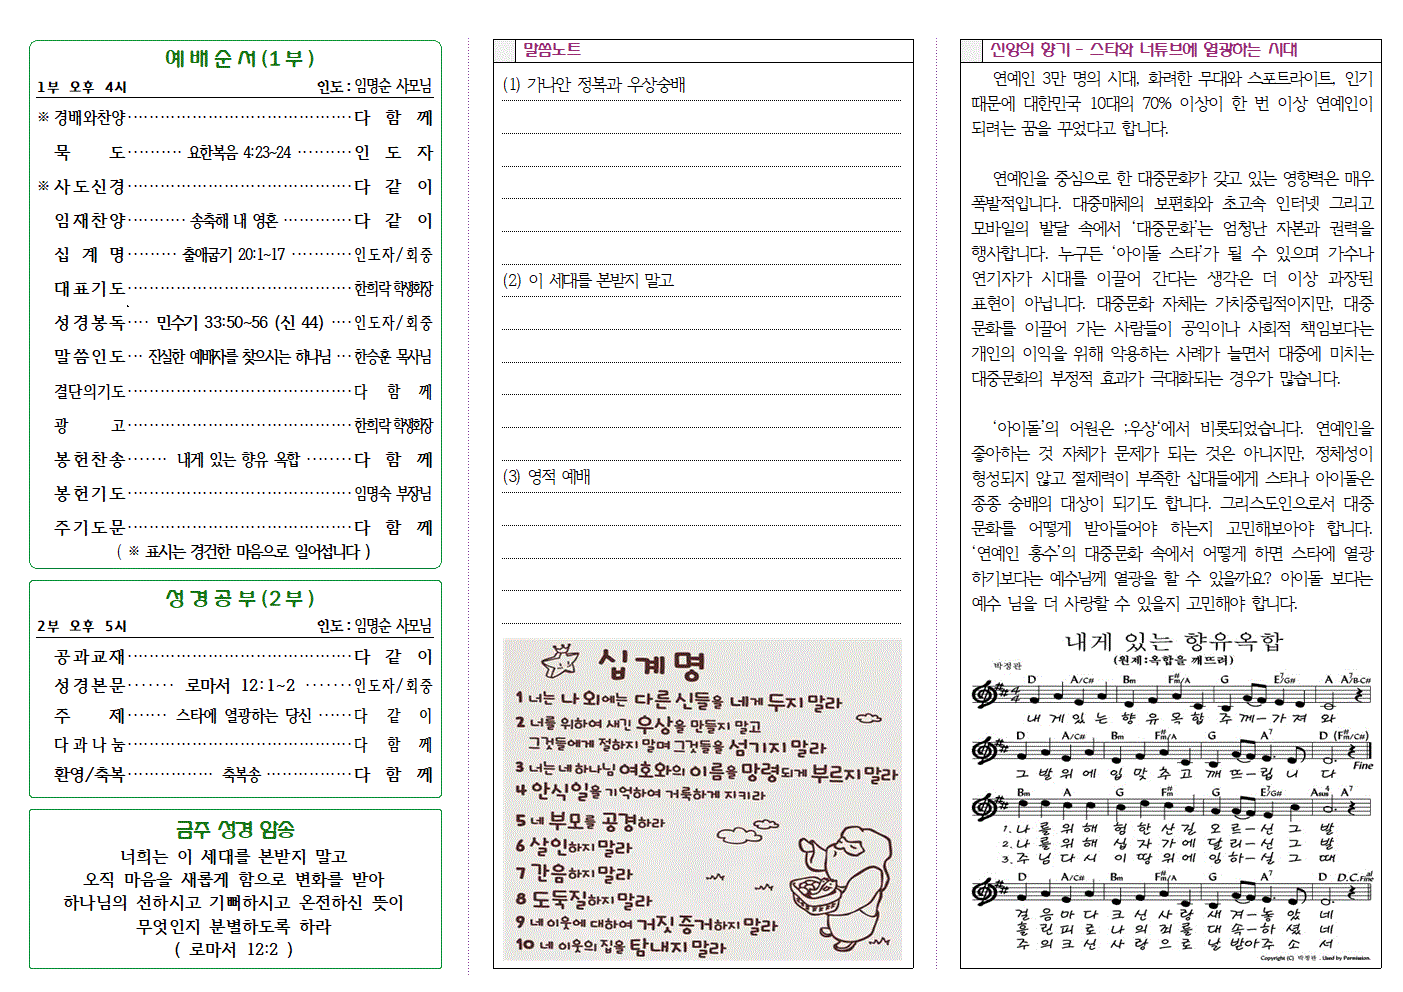 예배순서(1부)
1부 오후 4시 인도 : 임명순 사모님
※ 경배와찬양 다 함 께
묵 도 요한복음 4:23~24 인 도 자
※ 사도신경 다 같 이
임재찬양 송축해 내 영혼 다 같 이
십 계 명 출애굽기 20:1~17 인도자/회중
대표기도 한희락 학생회장
성경봉독 민수기 33:50~56 (신 44) 인도자/회중
말씀인도 진실한 예배자를 찾으시는 하나님 한승훈 목사님
결단의기도 다 함 께
광 고 한희락 학생회장
봉헌찬송 내게 있는 향유 옥합 다 함 께
봉헌기도 임명숙 부장님
주기도문 다 함 께
( ※ 표시는 경건한 마음으로 일어섭니다 )
성경공부(2부)
2부 오후 5시 인도 : 임명순 사모님
공과교재 다 같 이
성경본문 로마서 12:1~2 인도자/회중
주 제 스타에 열광하는 당신 다 같 이
다과나눔 다 함 께
환영/축복 축복송 다 함 께
금주 성경 암송
너희는 이 세대를 본받지 말고
오직 마음을 새롭게 함으로 변화를 받아
하나님의 선하시고 기뻐하시고 온전하신 뜻이
무엇인지 분별하도록 하라
( 로마서 12:2 )
말씀노트
(1) 가나안 정복과 우상숭배
(2) 이 세대를 본받지 말고
(3) 영적 예배
십계명
1 너는 나 외에는 다른 신들을 네게 두지 말라
2 너를 위하여 새긴 우상을 만들지 말고
그것들에게 절하지 말며 그것들을 섬기지 말라
3 너는 네 하나님 여호와의 이름을 망령되게 부르지 말라
4 안식일을 기억하여 거룩하게 지키라
5 네 부모를 공경하라
6 살인하지 말라
7 간음하지 말라
8 도둑질하지 말라
9 네 이웃에 대하여 거짓 증거하지 말라
10 네 이웃의 집을 탐내지 말라
신앙의 향기 - 스타와 너튜브에 열광하는 시대
연예인 3만 명의 시대, 화려한 무대와 스포트라이트, 인기
때문에 대한민국 10대의 70% 이상이 한 번 이상 연예인이
되려는 꿈을 꾸었다고 합니다.
연예인을 중심으로 한 대중문화가 갖고 있는 영향력은 매우
폭발적입니다. 대중매체의 보편화와 초고속 인터넷 그리고
모바일의 발달 속에서 ‘대중문화’는 엄청난 자본과 권력을
행사합니다. 누구든 ‘아이돌 스타’가 될 수 있으며 가수나
연기자가 시대를 이끌어 간다는 생각은 더 이상 과장된
표현이 아닙니다. 대중문화 자체는 가치중립적이지만, 대중
문화를 이끌어 가는 사람들이 공익이나 사회적 책임보다는
개인의 이익을 위해 악용하는 사례가 늘면서 대중에 미치는
대중문화의 부정적 효과가 극대화되는 경우가 많습니다.
‘아이돌’의 어원은 ;우상‘에서 비롯되었습니다. 연예인을
좋아하는 것 자체가 문제가 되는 것은 아니지만, 정체성이
형성되지 않고 절제력이 부족한 십대들에게 스타나 아이돌은
종종 숭배의 대상이 되기도 합니다. 그리스도인으로서 대중
문화를 어떻게 받아들여야 하는지 고민해보아야 합니다.
‘연예인 홍수’의 대중문화 속에서 어떻게 하면 스타에 열광
하기보다는 예수님께 열광을 할 수 있을까요? 아이돌 보다는
예수 님을 더 사랑할 수 있을지 고민해야 합니다.
내게 있는 향유옥합
(원제:옥합을 깨뜨려)
박정관
D A/C# Bm F#m/A G E7/G# A A7 B·C#
내 게 있 는 향 유 옥 합 주 께 - 가 져 와
D A/C# Bm F#m/A G A7 D (F#m/C#)
그 발 위 에 입 맞 추 고 깨 뜨 - 립 니 다 Fine
Bm A G F#m G E7/G# Asus4 A7
1. 나 를 위 해 험 한 산 길 오 르 - 신 그 발
2. 나 를 위 해 십 자 가 에 달 리 - 신 그 발
3. 주 님 다 시 이 땅 위 에 임 하 - 실 그 때
D A/C# Bm F#m/A G A7 D D.C. al Fine
걸 음 마 다 크 신 사 랑 새 겨 - 놓 았 네
흘 린 피 로 나 의 죄 를 대 속 - 하 셨 네
주 의 크 신 사 랑 으 로 날 받아 주 소 서
Copyright (C) 박정관. Used by Permission.